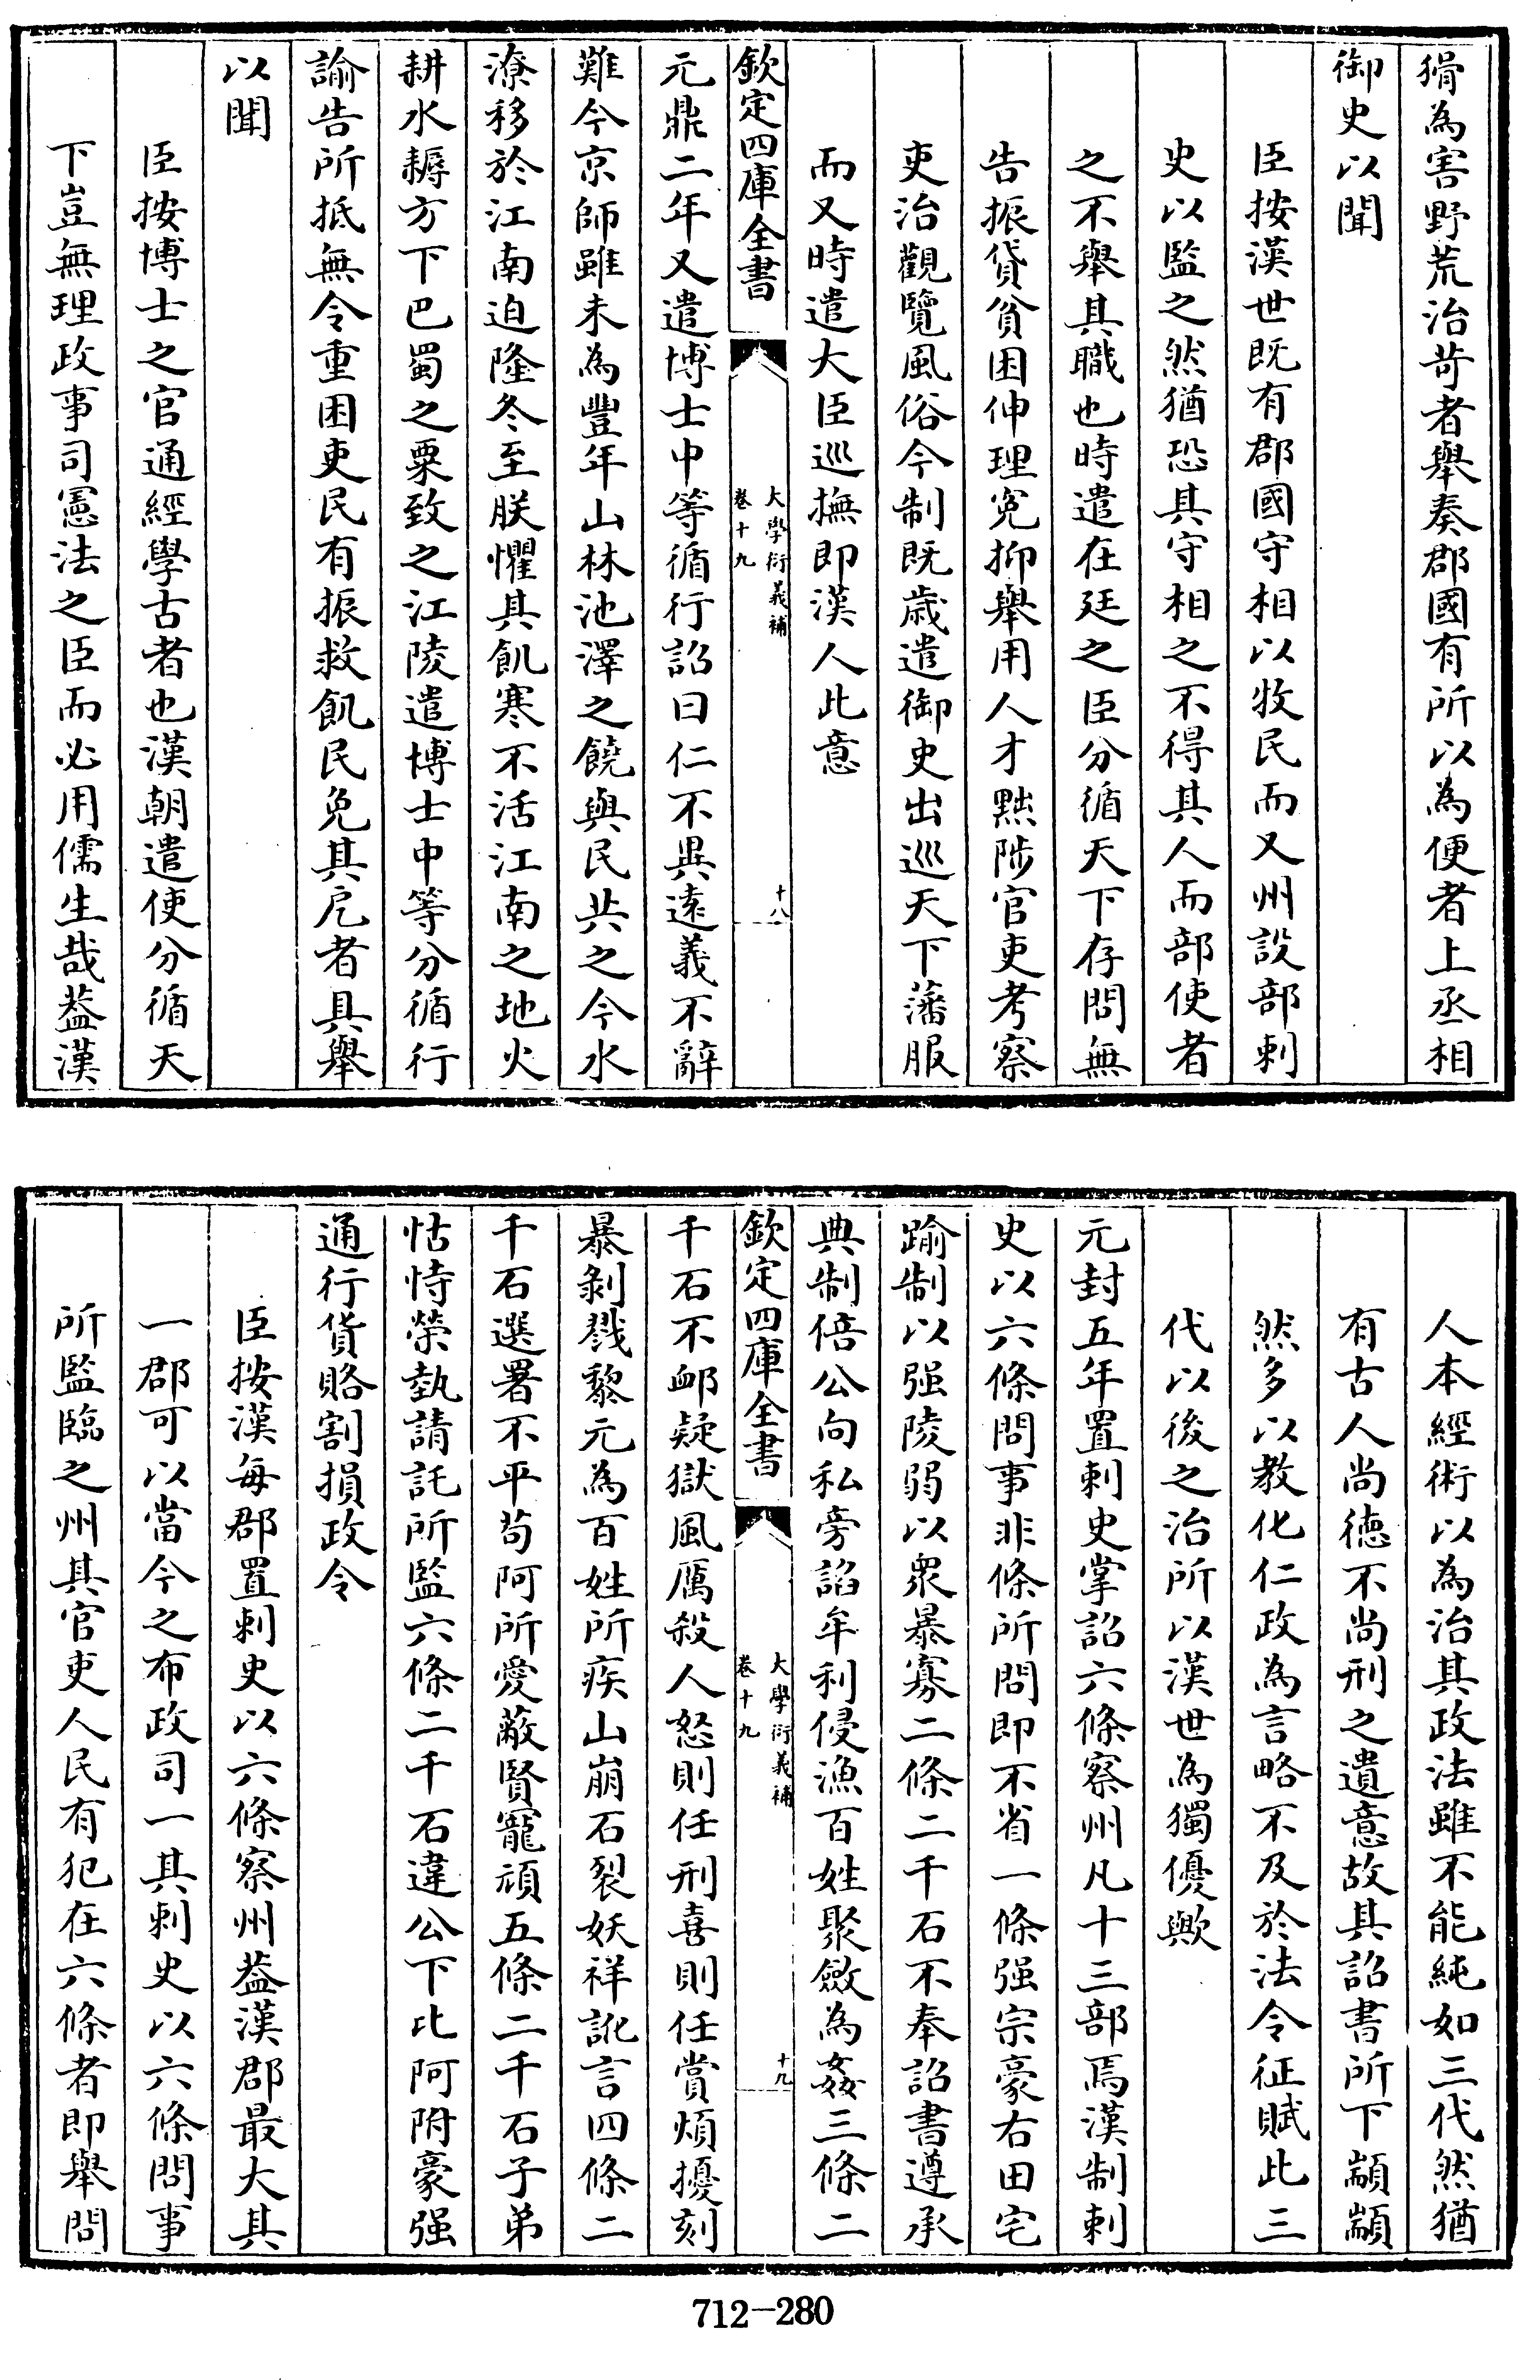 猾為害野荒治苛者舉奏郡國有所以為便者上丞相
御史以聞
臣按漢世既有郡國守相以牧民而又州設部刺
史以監之然猶恐其守相之不得其人而部使者
之不舉其職也時遣在廷之臣分循天下存問無
告振貸貧困伸理寃抑舉用人才黜陟官吏考察
吏治觀覽風俗今制既歲遣御史出巡天下藩服
而又時遣大臣巡撫即漢人此意
欽定四庫全書
大學衍義補
卷十九
十八
元鼎二年又遣博士中等循行詔曰仁不異遠義不辭
難今京師雖未為豐年山林池澤之饒與民共之今水
潦移於江南迫隆冬至朕懼其飢寒不活江南之地火
耕水耨方下巴蜀之粟致之江陵遣博士中等分循行
諭告所抵無令重困吏民有振救飢民免其戹者具舉
以聞
臣按博士之官通經學古者也漢朝遣使分循天
下豈無理政事司憲法之臣而必用儒生哉葢漢
人本經術以為治其政法雖不能純如三代然猶
有古人尚德不尚刑之遺意故其詔書所下顓顓
然多以教化仁政為言略不及於法令征賦此三
代以後之治所以漢世為獨優歟
元封五年置刺史掌詔六條察州凡十三部焉漢制刺
史以六條問事非條所問即不省一條强宗豪右田宅
踰制以强陵弱以衆暴寡二條二千石不奉詔書遵承
典制倍公向私旁詔牟利侵漁百姓聚斂為姦三條二
欽定四庫全書
大學衍義補
卷十九
十九
千石不䘏疑獄風厲殺人怒則任刑喜則任賞煩擾刻
暴剝戮黎元為百姓所疾山崩石裂妖祥訛言四條二
千石選署不平苟阿所愛蔽賢寵頑五條二千石子弟
怙恃榮埶請託所監六條二千石違公下比阿附豪强
通行貨賂割損政令
臣按漢每郡置刺史以六條察州葢漢郡最大其
一郡可以當今之布政司一其刺史以六條問事
所監臨之州其官吏人民有犯在六條者即舉問
712-280